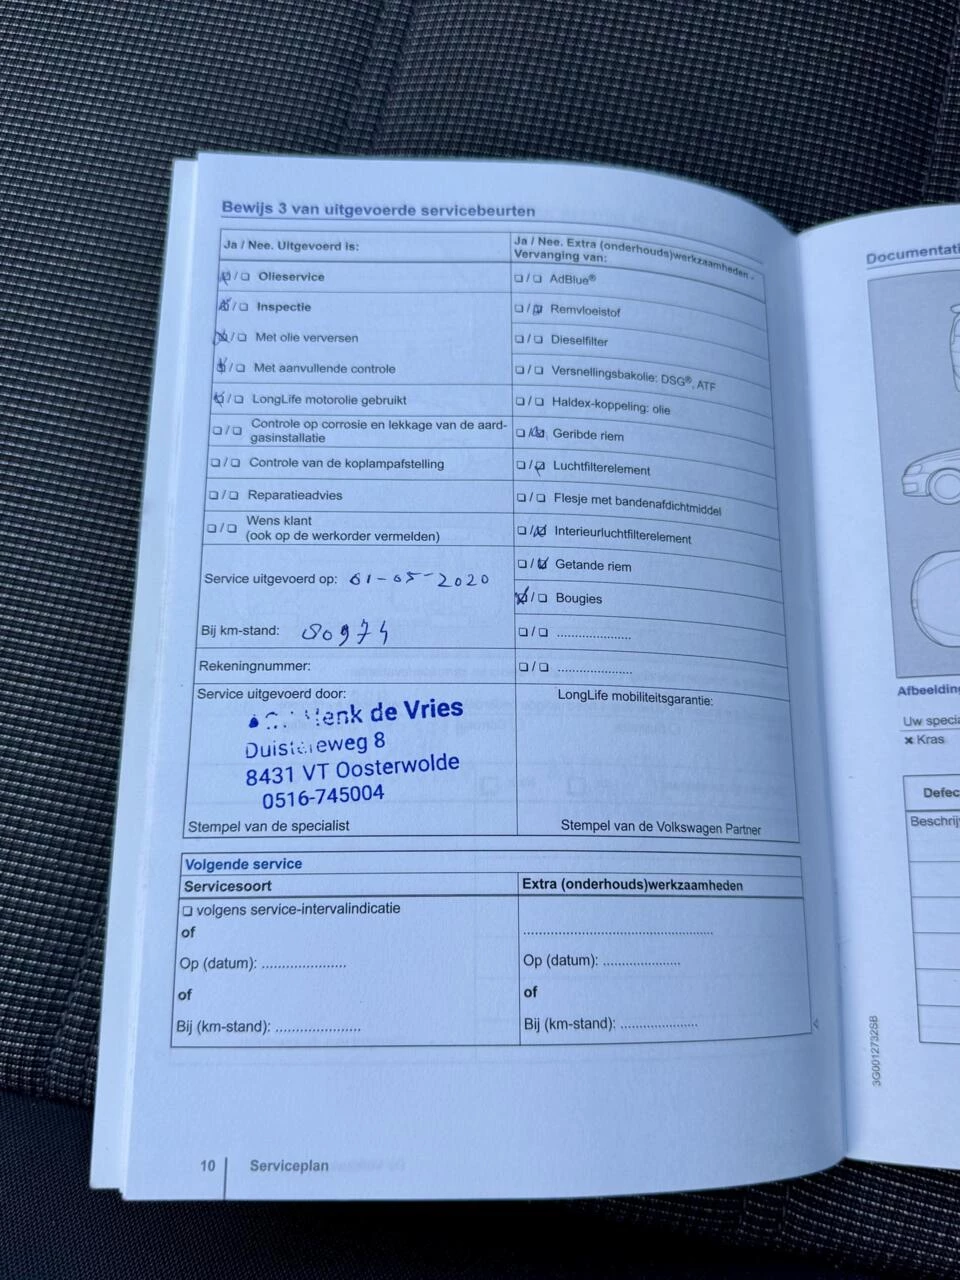 Bewijs 3 van uitgevoerde servicebeurten
Ja / Nee. Uitgevoerd is:
☒/☐ Olieservice
☒/☐ Inspectie
☒/☐ Met olie verversen
☒/☐ Met aanvullende controle
☒/☐ LongLife motorolie gebruikt
☐/☐ Controle op corrosie en lekkage van de aard-
gasinstallatie
☐/☐ Controle van de koplampafstelling
☐/☐ Reparatieadvies
☐/☐ Wens klant
(ook op de werkorder vermelden)
Service uitgevoerd op: 01-05-2020
Bij km-stand: 80974
Rekeningnummer:
Service uitgevoerd door:
Henk de Vries
8
8431 VT Oosterwolde
0516-745004
Stempel van de specialist
Ja / Nee. Extra (onderhouds)werkzaamheden -
Vervanging van:
☐/☐ AdBlue®
☐/☒ Remvloeistof
☐/☐ Dieselfilter
☐/☐ Versnellingsbakolie: DSG®, ATF
☐/☐ Haldex-koppeling: olie
☐/☒ Geribde riem
☐/☒ Luchtfilterelement
☐/☐ Flesje met bandenafdichtmiddel
☐/☒ Interieurluchtfilterelement
☐/☒ Getande riem
☒/☐ Bougies
☐/☐ .....................
☐/☐ .....................
LongLife mobiliteitsgarantie:
Stempel van de Volkswagen Partner
Volgende service
Servicesoort
☐ volgens service-intervalindicatie
of
Op (datum): .....................
of
Bij (km-stand): .....................
Extra (onderhouds)werkzaamheden
..............................................
Op (datum): ...................
of
Bij (km-stand): ...................
10 Serviceplan
Documentati
Afbeelding
Uw specia
× Kras
Defec
Beschrij
3G0012732SB